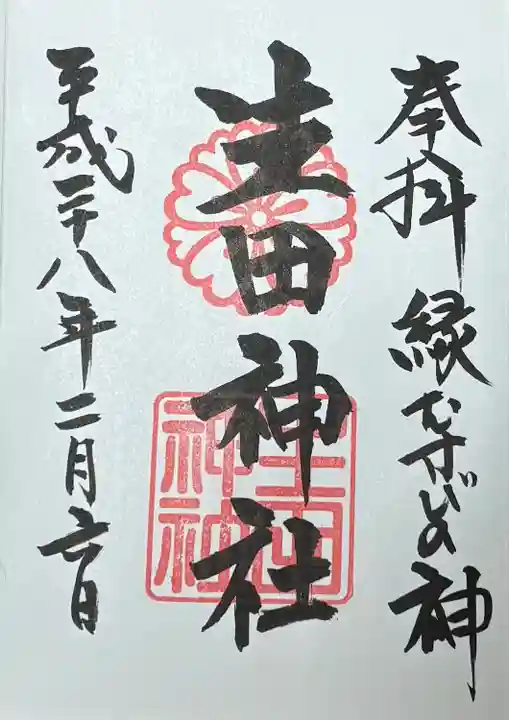 奉拝 縁むすびの神
生田神社
生田
神社
平成二十八年二月六日